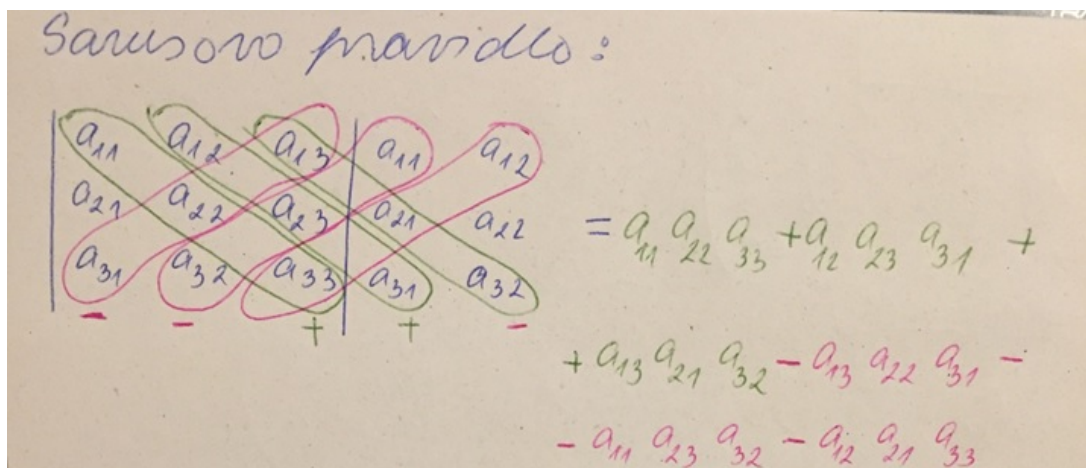 Sarusovo pravidlo:
| a₁₁ a₁₂ a₁₃ | a₁₁ a₁₂
| a₂₁ a₂₂ a₂₃ | a₂₁ a₂₂ = a₁₁ a₂₂ a₃₃ + a₁₂ a₂₃ a₃₁ +
| a₃₁ a₃₂ a₃₃ | a₃₁ a₃₂
− − + + −
+ a₁₃ a₂₁ a₃₂ − a₁₃ a₂₂ a₃₁ −
− a₁₁ a₂₃ a₃₂ − a₁₂ a₂₁ a₃₃